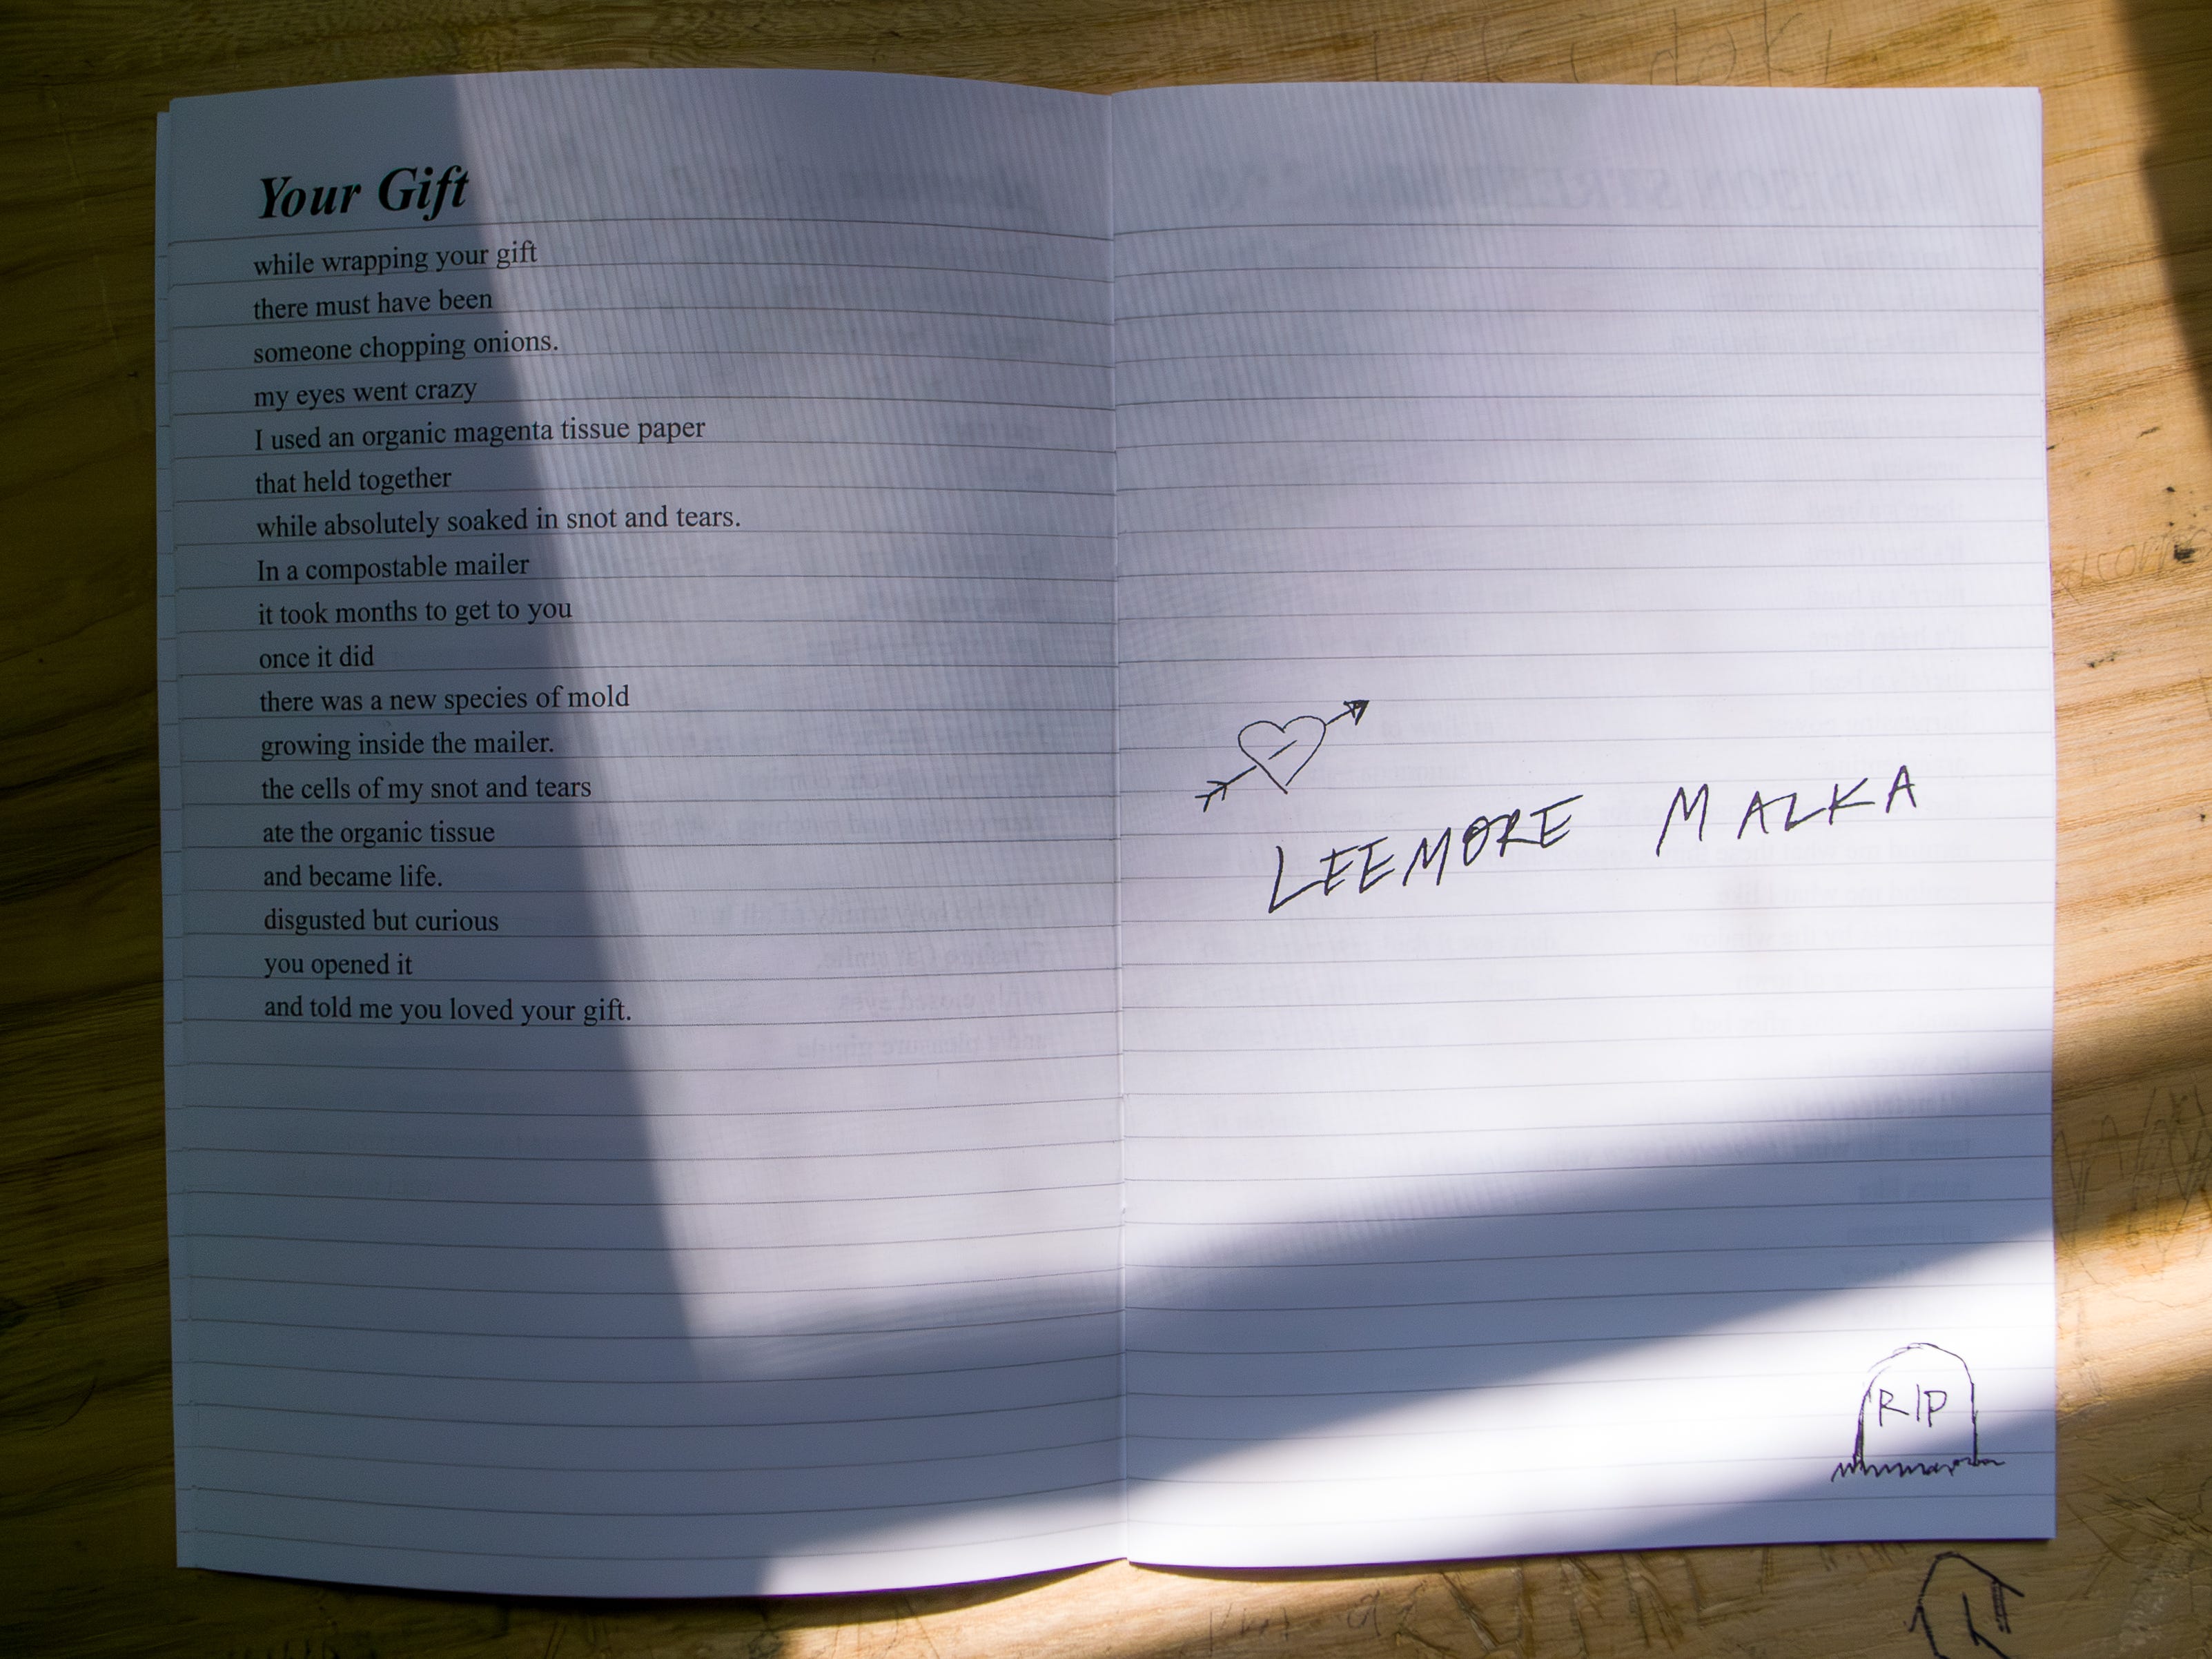 Your Gift
while wrapping your gift
there must have been
someone chopping onions.
my eyes went crazy
I used an organic magenta tissue paper
that held together
while absolutely soaked in snot and tears.
In a compostable mailer
it took months to get to you
once it did
there was a new species of mold
growing inside the mailer.
the cells of my snot and tears
ate the organic tissue
and became life.
disgusted but curious
you opened it
and told me you loved your gift.
LEEMORE MALKA
RIP